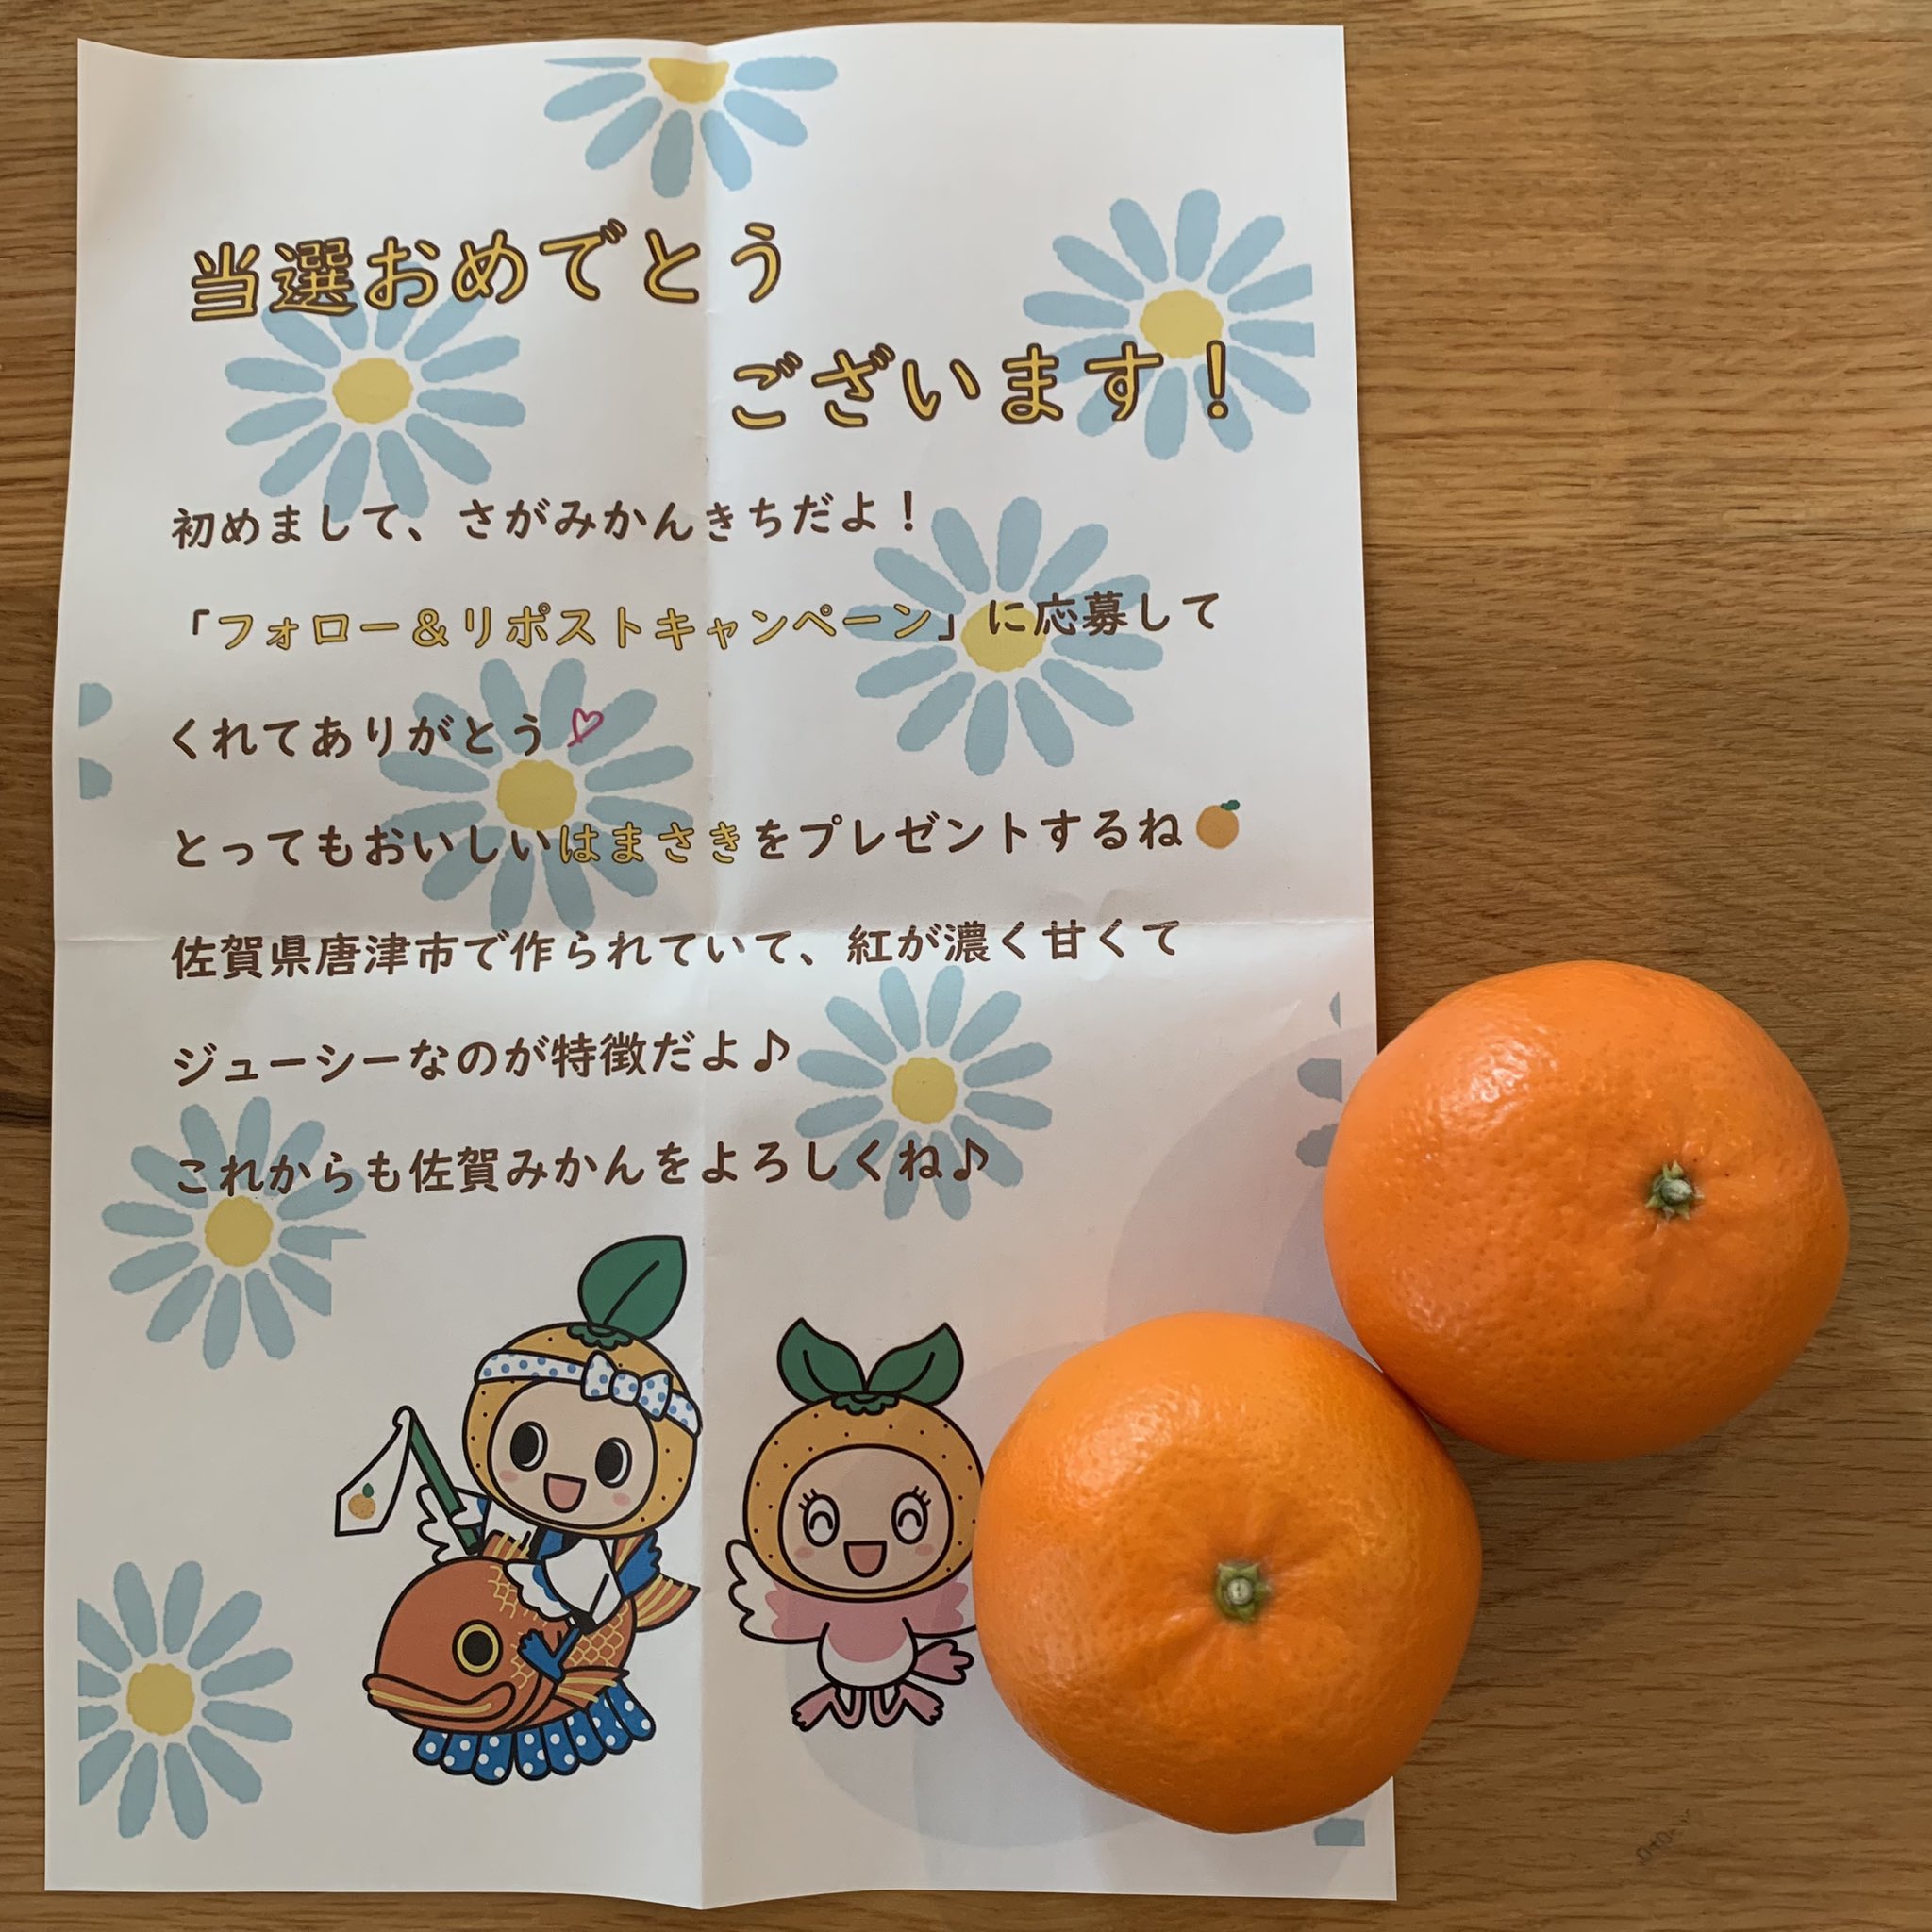 当選おめでとう
ございます！
初めまして、さがみかんきちだよ！
「フォロー＆リポストキャンペーン」に応募して
くれてありがとう
とってもおいしいはまさきをプレゼントするね
佐賀県唐津市で作られていて、紅が濃く甘くて
ジューシーなのが特徴だよ♪
これからも佐賀みかんをよろしくね♪